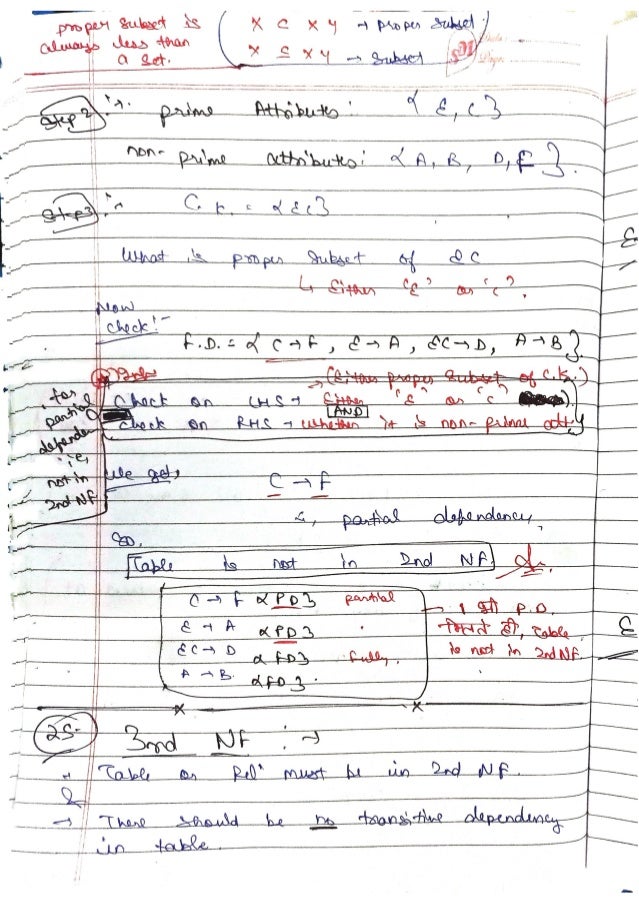 proper subset is
always less than
a set.
X ⊂ XY → Proper Subset
X ⊆ XY → Subset
Step 2 :→ prime Attributes : { E, C }
non-prime attributes : { A, B, D, F }.
Step 3 :→ C.K. = {EC}
What is proper subset of EC
↳ Either 'E' or 'C'.
Now
check :-
F.D. = { C → F, E → A, EC → D, A → B }.
(Either proper subset of C.K.)
Check on LHS → Either 'E' or 'C'
AND
Check on RHS → whether it is non-prime att.
for
partial
dependen
i.e,
not in
2nd NF
We get,
C → F
is, partial dependency,
So,
Table is not in 2nd NF
C → F {PD} partial
E → A {PD} "
EC → D {FD} fully.
A → B {FD}.
→ 1 भी P.D.
मिलते ही, Table
is not in 2nd NF.
25. 3rd NF :→
→ Table or Relⁿ must be in 2nd NF.
&
→ There should be no transitive dependency
in table.